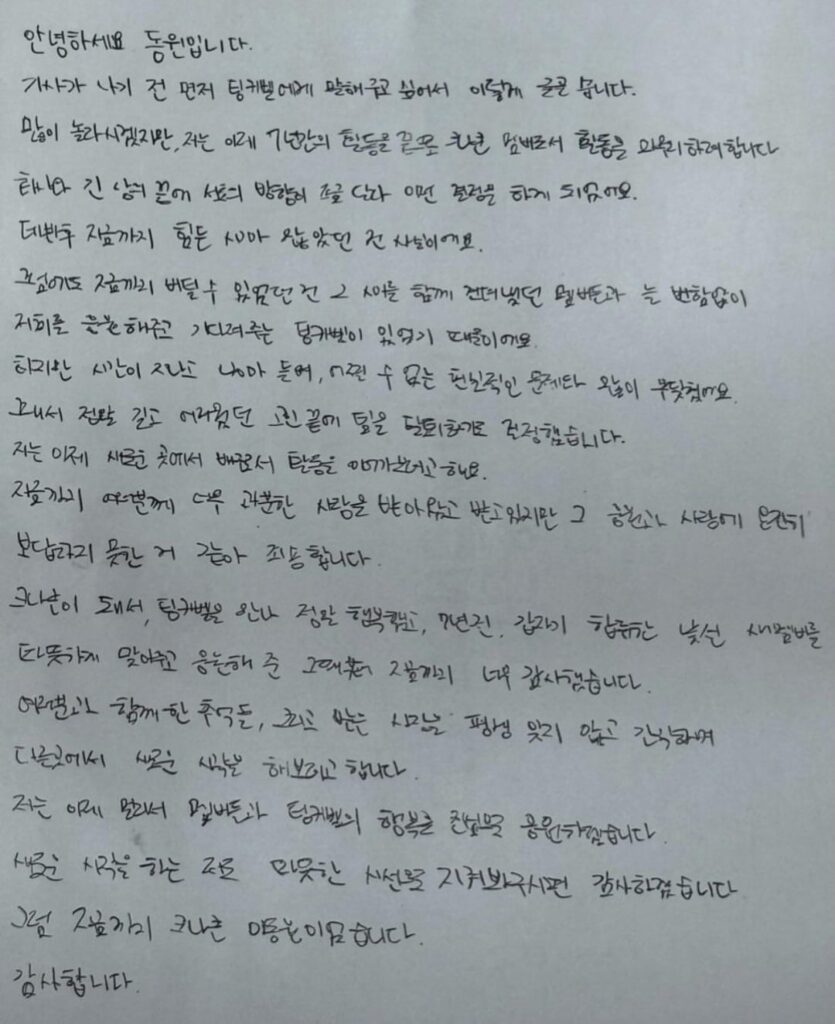 안녕하세요 동원입니다.
기사가 나기 전 먼저 팅커벨에게 말해주고 싶어서 이렇게 글을 씁니다.
많이 놀라시겠지만, 저는 이제 7년간의 활동을 끝으로 크나큰 멤버로서 활동을 마무리하려합니다
회사와 긴 상의 끝에 서로의 방향이 조금 달라 이런 결정을 하게 되었어요.
데뷔후 지금까지 힘든 시간이 많았던 건 사실이에요.
그럼에도 지금까지 버틸 수 있었던 건 그 시간을 함께 견뎌냈던 멤버들과 늘 변함없이
저희를 응원해주고 기다려주는 팅커벨이 있었기 때문이에요.
하지만 시간이 지나고 나이가 들며, 어쩔 수 없는 현실적인 문제와 많이 부딪혔어요.
그래서 정말 길고 어려웠던 고민 끝에 팀을 탈퇴하기로 결정했습니다.
저는 이제 새로운 곳에서 배우로서 활동을 이어가보려고 해요.
지금까지 여러분께 너무 과분한 사랑을 받아왔고 받고있지만 그 응원과 사랑에 온전히
보답하지 못한 거 같아 죄송합니다.
크나큰이 돼서, 팅커벨을 만나 정말 행복했고, 7년전, 갑자기 합류한 낯선 새멤버를
따뜻하게 맞아주고 응원해 준 그때부터 지금까지 너무 감사했습니다.
여러분과 함께한 추억들, 그리고 받은 사랑을 평생 잊지 않고 간직하며
다른곳에서 새로운 시작을 해보려고 합니다.
저는 이제 멀리서 멤버들과 팅커벨의 행복을 진심으로 응원하겠습니다.
새로운 시작을 하는 저를 따뜻한 시선으로 지켜봐주시면 감사하겠습니다
그럼 지금까지 크나큰 이동원이었습니다.
감사합니다.